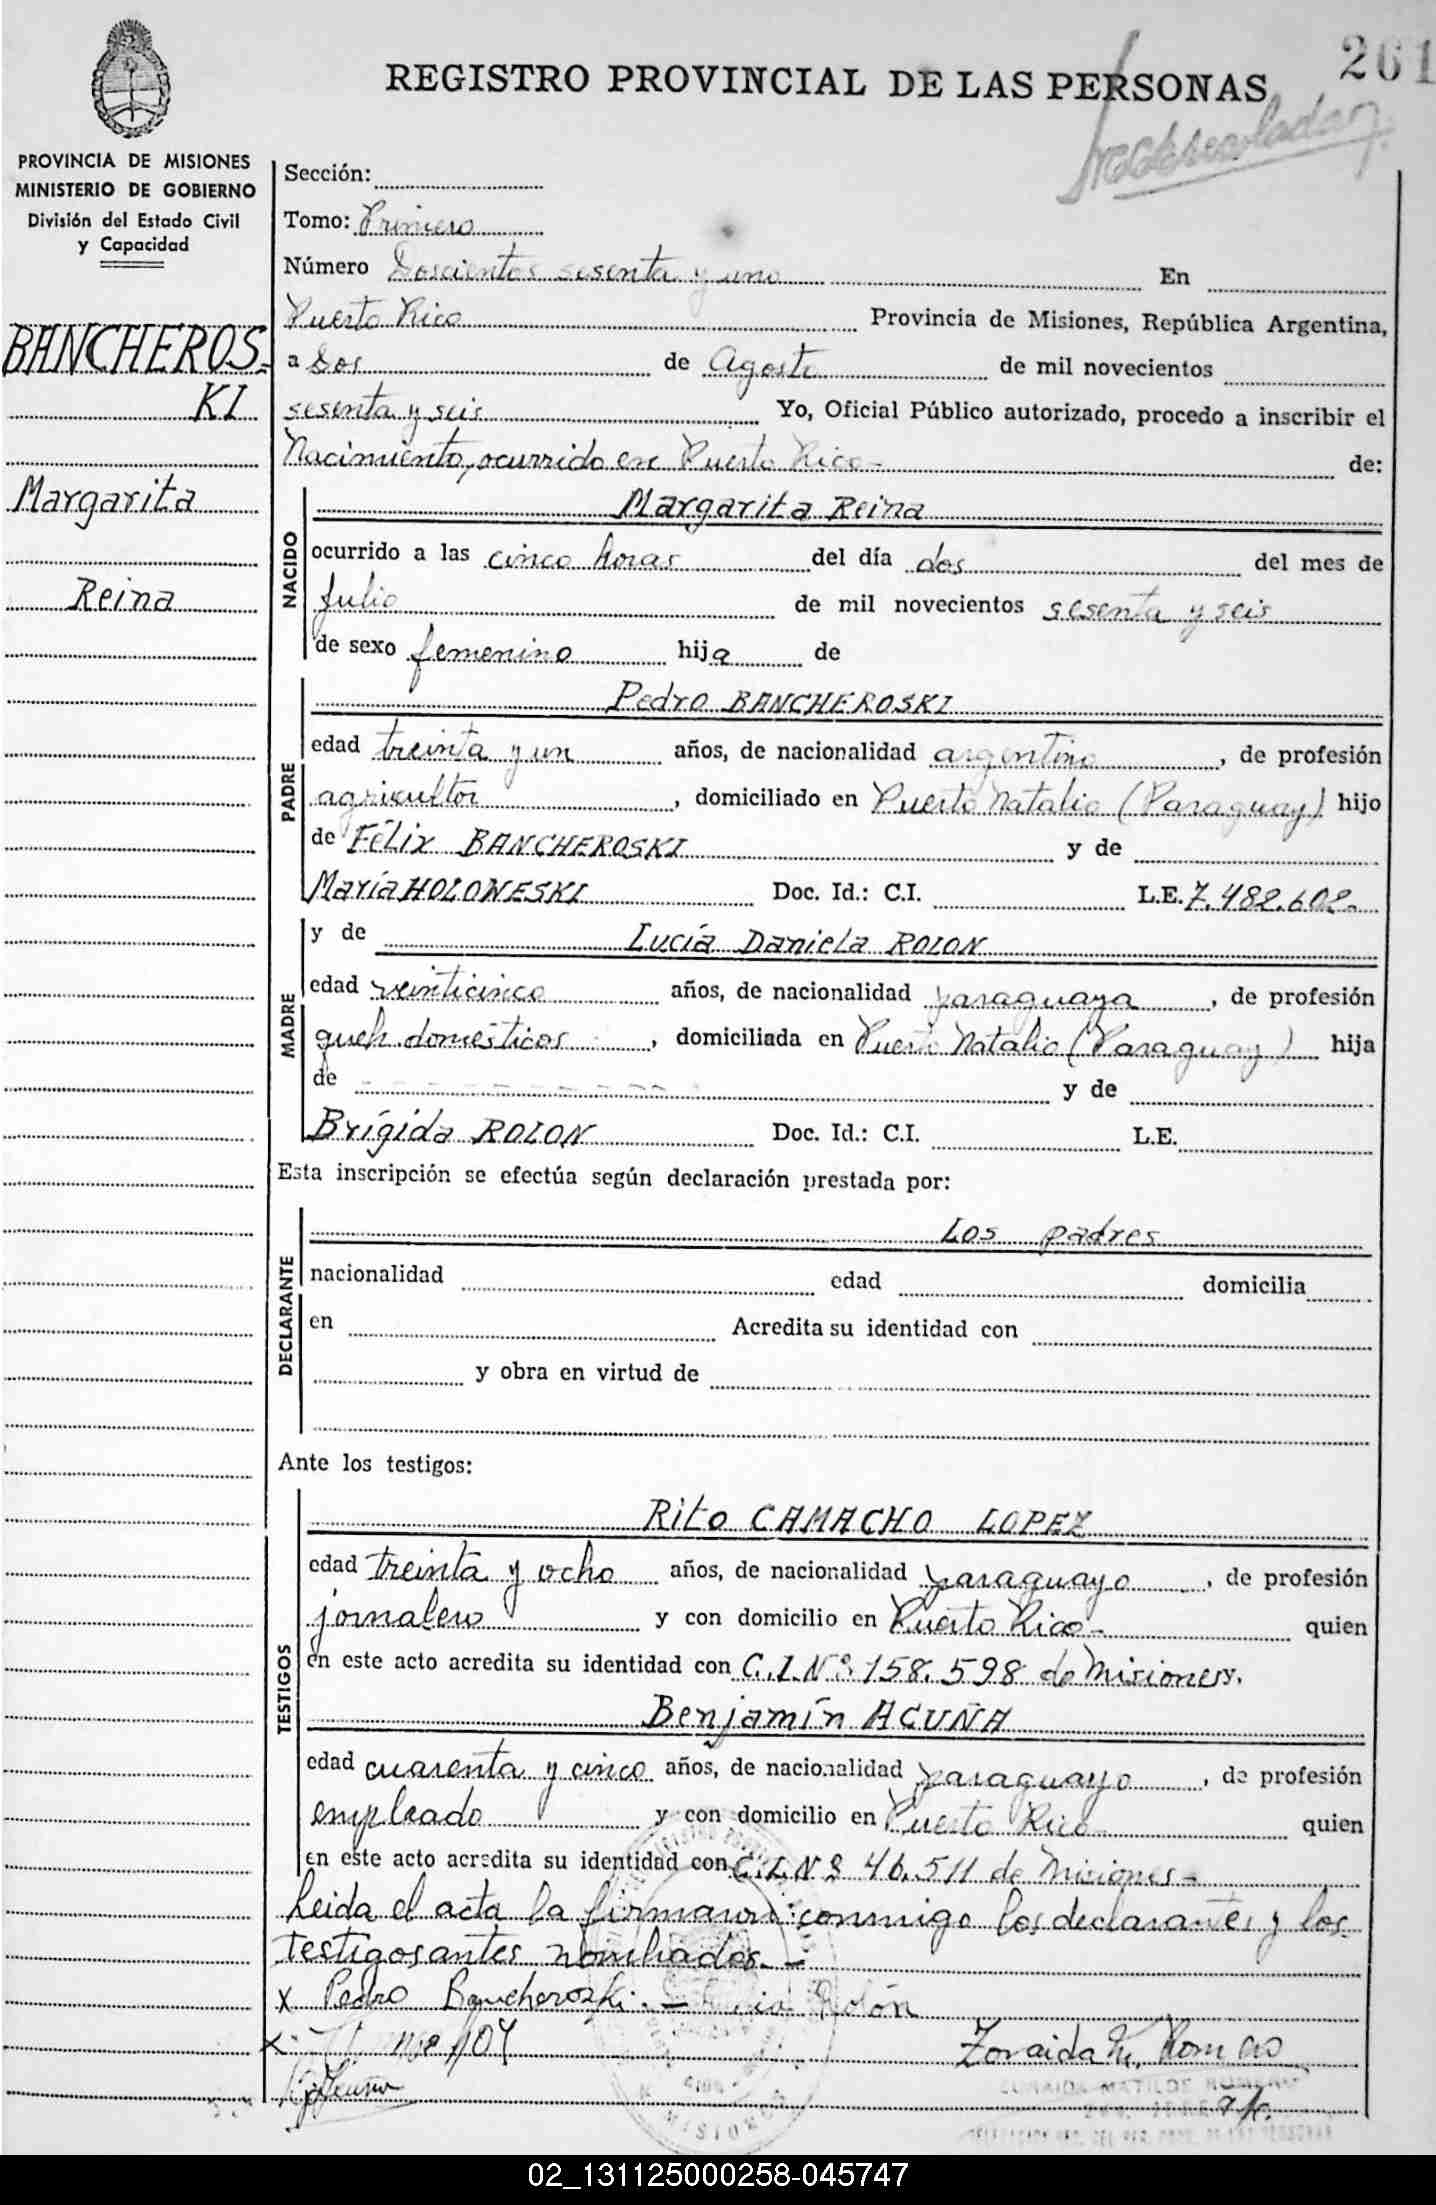 261
REGISTRO PROVINCIAL DE LAS PERSONAS
PROVINCIA DE MISIONES
MINISTERIO DE GOBIERNO
División del Estado Civil
y Capacidad
BANCHEROS-
KI
Margarita
Reina
Sección:
Tomo: Primero
Número Doscientos sesenta y uno En
Puerto Rico Provincia de Misiones, República Argentina,
a Dos de Agosto de mil novecientos
sesenta y seis Yo, Oficial Público autorizado, procedo a inscribir el
Nacimiento, ocurrido en Puerto Rico- de:
NACIDO
Margarita Reina
ocurrido a las cinco horas del día dos del mes de
Julio de mil novecientos sesenta y seis
de sexo femenino hija de
PADRE
Pedro BANCHEROSKI
edad treinta y un años, de nacionalidad argentino, de profesión
agricultor, domiciliado en Puerto Natalio (Paraguay) hijo
de Félix BANCHEROSKI y de
María HOLOWESKI Doc. Id.: C.I. L.E. 7.482.602-
MADRE
y de Lucía Daniela ROLON
edad veinticinco años, de nacionalidad paraguaya, de profesión
queh. domésticos, domiciliada en Puerto Natalio (Paraguay) hija
de - - - - - - - - - - y de
Brígida ROLON Doc. Id.: C.I. L.E.
Esta inscripción se efectúa según declaración prestada por:
DECLARANTE
Los padres
nacionalidad edad domicilia
en Acredita su identidad con
y obra en virtud de
Ante los testigos:
TESTIGOS
Rito CAMACHO LOPEZ
edad treinta y ocho años, de nacionalidad paraguayo, de profesión
jornalero y con domicilio en Puerto Rico- quien
en este acto acredita su identidad con C.I.Nº 158.598 de Misiones.
Benjamín ACUÑA
edad cuarenta y cinco años, de nacionalidad paraguayo, de profesión
empleado y con domicilio en Puerto Rico- quien
en este acto acredita su identidad con C.I.Nº 46.511 de Misiones-
Leida el acta la firman conmigo los declarantes y los
testigos antes nombrados.-
x Pedro Bancheroski.- Lucia Rolón
x
Zoraida M. Romero
ZORAIDA MATILDE ROMERO
MISIONES
02_131125000258-045747